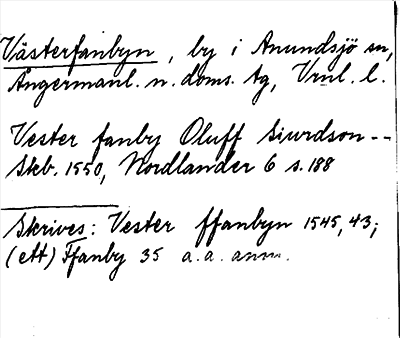 Västerfanbyn, by i Anundsjö sn,
Ångermanl. n. doms. tg, Vrnl. l.
Vester fanby Oluff Siurdson --
Skb. 1550, Nordlander 6 s. 188
Skrives: Vester ffanbyn 1545, 43;
(ett) Ffanby 35 a.a. anm.